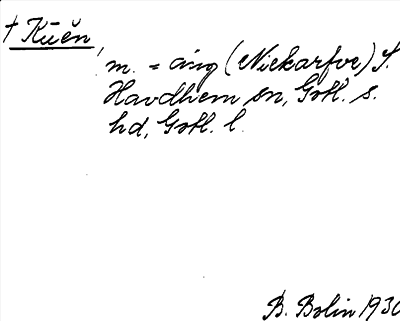 † Küĕn,
m. = äng (Nickarfve) S.
Havdhem sn, Gotl. s.
hd, Gotl. l.
B. Bolin 1930